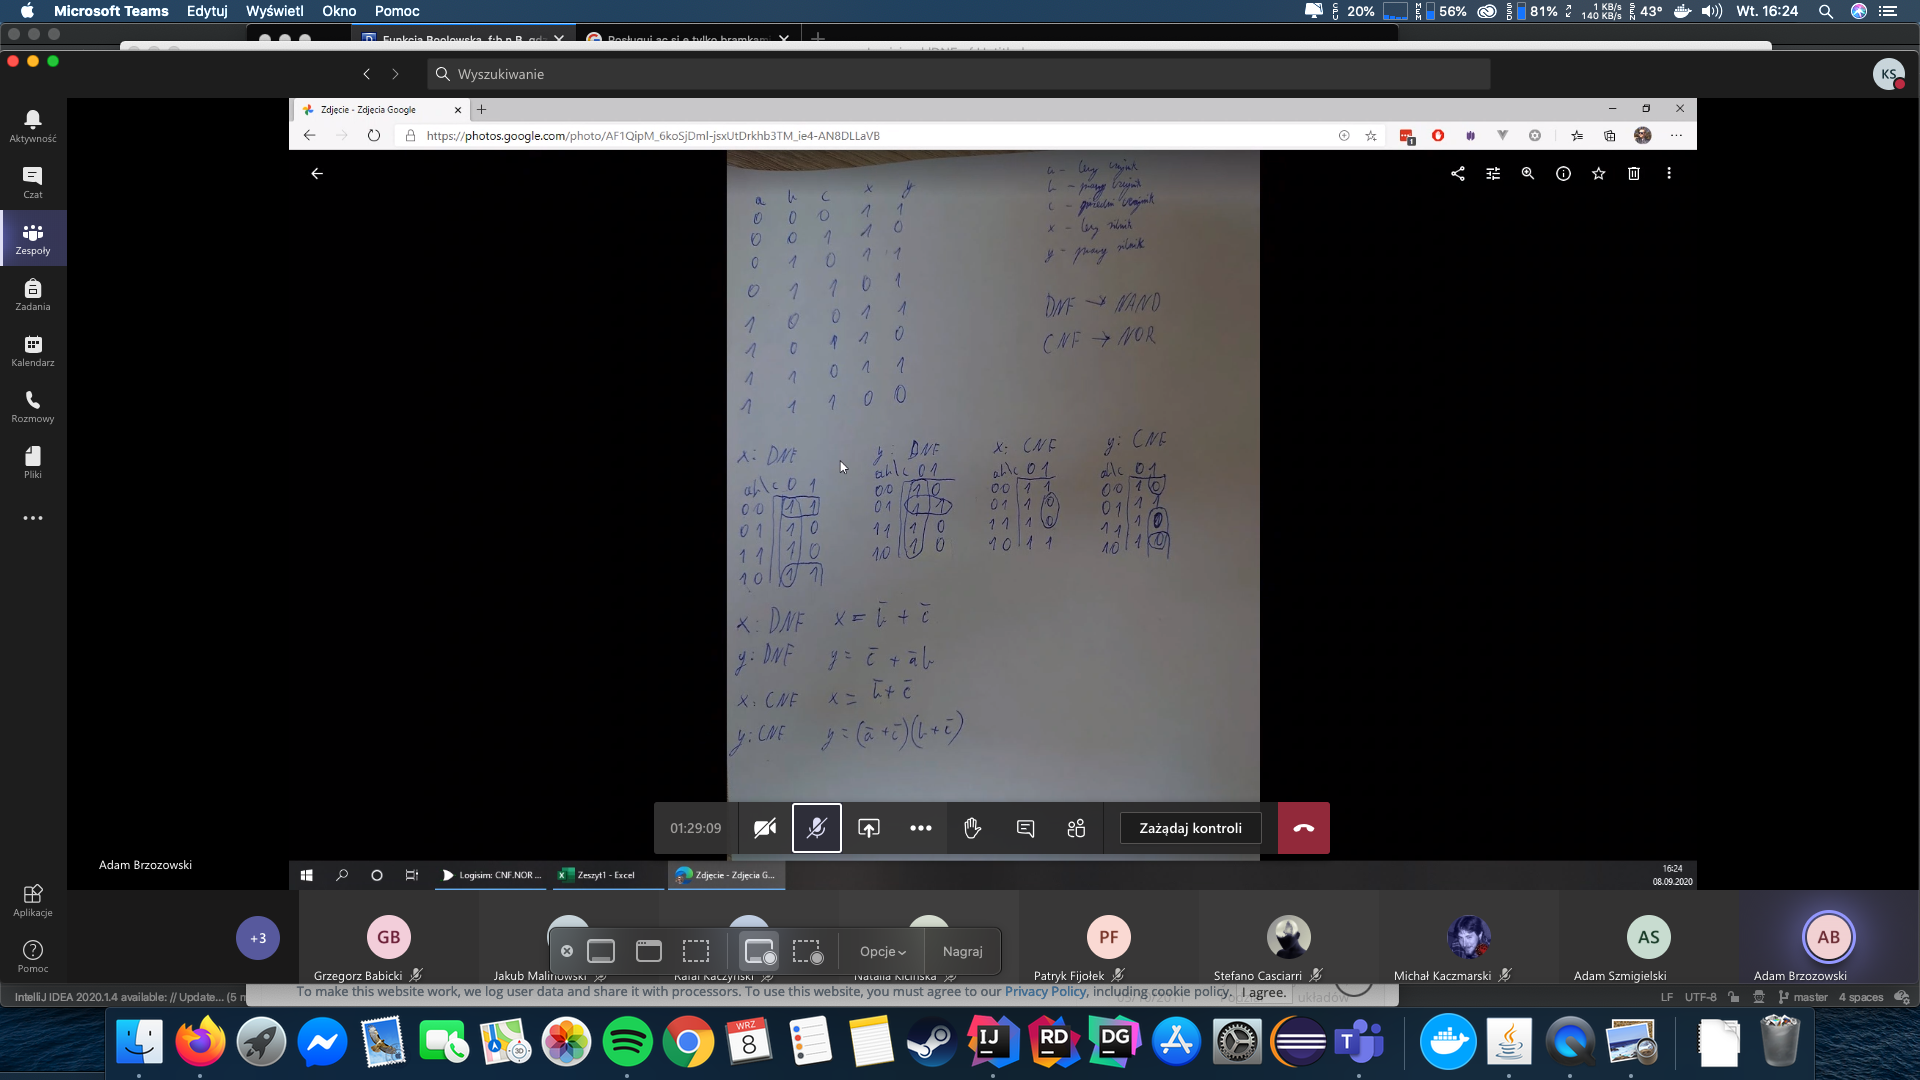 Microsoft Teams Edytuj Wyświetl Okno Pomoc
20% 56% 81% 1 KB/s 140 KB/s 43° Wt. 16:24
Funkcja Boolowska. f:b n B, gdz
Posługuj ąc si ę tylko bramkam
Wyszukiwanie
KS
Aktywność
Czat
Zespoły
Zadania
Kalendarz
Rozmowy
Pliki
Aplikacje
Pomoc
Zdjęcie - Zdjęcia Google
https://photos.google.com/photo/AF1QipM_6koSjDmI-jsxUtDrkhb3TM_ie4-AN8DLLaVB
a b c x y
0 0 0 1 1
0 0 1 1 0
0 1 0 1 1
0 1 1 0 1
1 0 0 1 1
1 0 1 1 0
1 1 0 1 1
1 1 1 0 0
a - lewy czujnik
b - prawy czujnik
c - przedni czujnik
x - lewy silnik
y - prawy silnik
DNF → NAND
CNF → NOR
x: DNF
ab\c 0 1
00 1 1
01 1 0
11 1 0
10 1 1
y: DNF
ab\c 0 1
00 1 0
01 1 1
11 1 0
10 1 0
x: CNF
ab\c 0 1
00 1 1
01 1 0
11 1 0
10 1 1
y: CNF
ab\c 0 1
00 1 0
01 1 1
11 1 0
10 1 0
x: DNF x = b̅ + c̅
y: DNF y = c̅ + a̅b
x: CNF x = b̅ + c̅
y: CNF y = (a̅ + c̅)(b + c̅)
01:29:09 Zażądaj kontroli
Adam Brzozowski
Logisim: CNF.NOR ... Zeszyt1 - Excel Zdjęcie - Zdjęcia G...
16:24
08.09.2020
+3 GB PF AS AB
Grzegorz Babicki Jakub Malinowski Rafał Kaczyński Natalia Kicińska Patryk Fijołek Stefano Casciarri Michał Kaczmarski Adam Szmigielski Adam Brzozowski
Opcje Nagraj
IntelliJ IDEA 2020.1.4 available: // Update... (5 m
To make this website work, we log user data and share it with processors. To use this website, you must agree to our Privacy Policy, including cookie policy. I agree.
układów
LF UTF-8 master 4 spaces
WRZ
8
IJ RD DG